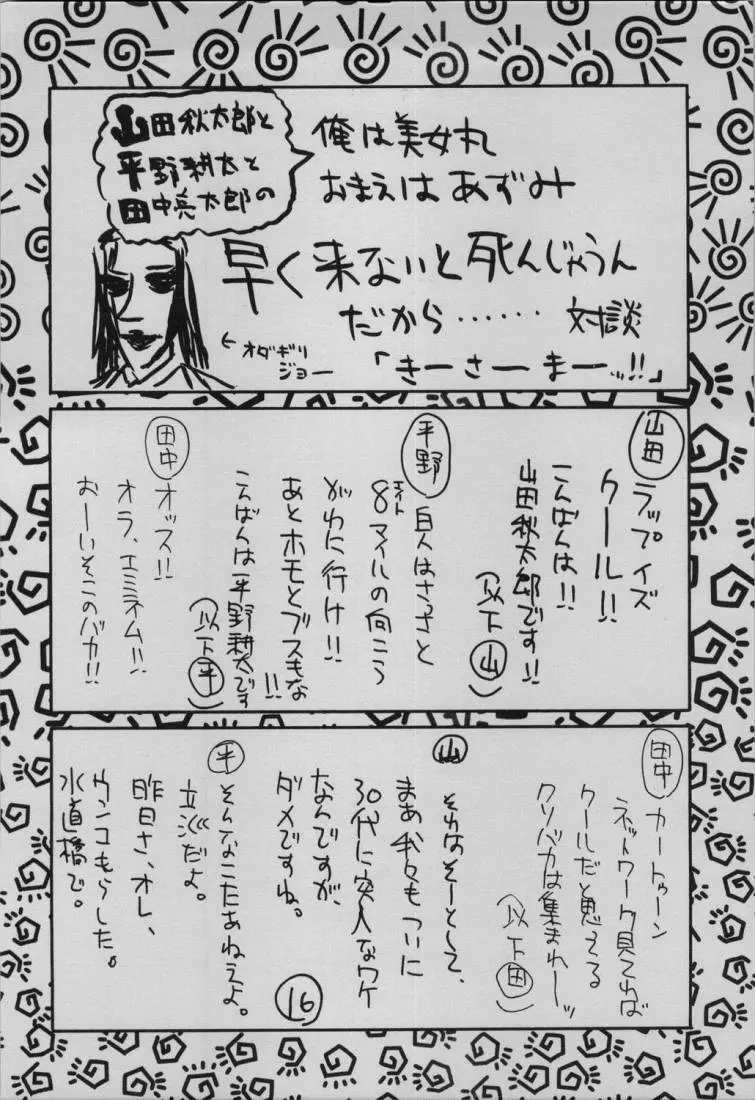 山田秋太郎と
平野耕太と
田中亮太郎の
俺は美女丸
おまえはあずみ
早く来ないと死んじゃうん
だから…… 対談
「きーさーまーッ!!」
←オダギリ
ジョー
山田
ラップイズ
クール!!
こんばんは!!
山田秋太郎です!!
(以下山)
平野
白人はさっさと
8マイルの向こう
エイト
がわに行け!!
あとホモとブスもな!!
こんばんは平野耕太です
(以下平)
田中
オッス!!
オラ、エミネム!!
おーいそこのバカ!!
田中
カートゥーン
ネットワーク見てれば
クールだと思てる
クソバカは集まれーッ
(以下田)
山
それはそーとして、
まあ我々もついに
30代に突入なワケ
なんですが、
ダメですね。
平
そんなこたあねえよ。
立派だよ。
昨日さ、オレ、
ウンコもらした。
水道橋で。
16